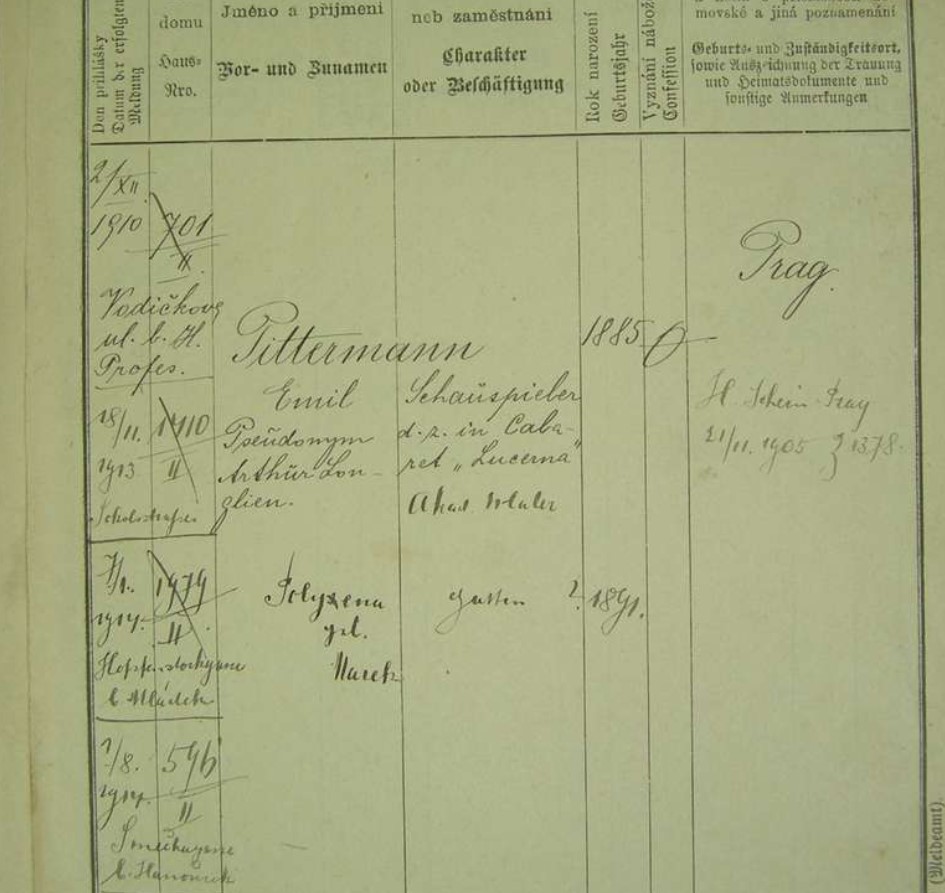 Den přihlášky
Datum der erfolgten
Meldung
domu
Haus-
Nro.
Jméno a příjmení
Vor- und Zunamen
neb zaměstnání
Charakter
oder Beschäftigung
Rok narození
Geburtsjahr
Vyznání nábož
Confession
movské a jiná poznamenání
Geburts- und Zuständigkeitsort,
sowie Auszeichnung der Trauung
und Heimatsdokumente und
sonstige Anmerkungen
2/XII
1910 701
II.
Vodičkova
ul. b. H.
Profes.
Pittermann
1885
Prag.
Emil
Pseudonym
Arthur Lon-
glien.
Schauspieler
d. z. in Caba-
ret „Lucerna"
Akad. Maler
H. Schein Prag
21/11. 1905 1378.
18/11. 1410
1913 II
7/1. 1979
1914. II
Polyxena
Marek
Gattin
? 1891.
1/8. 596
1914. II
(Meldeamt).